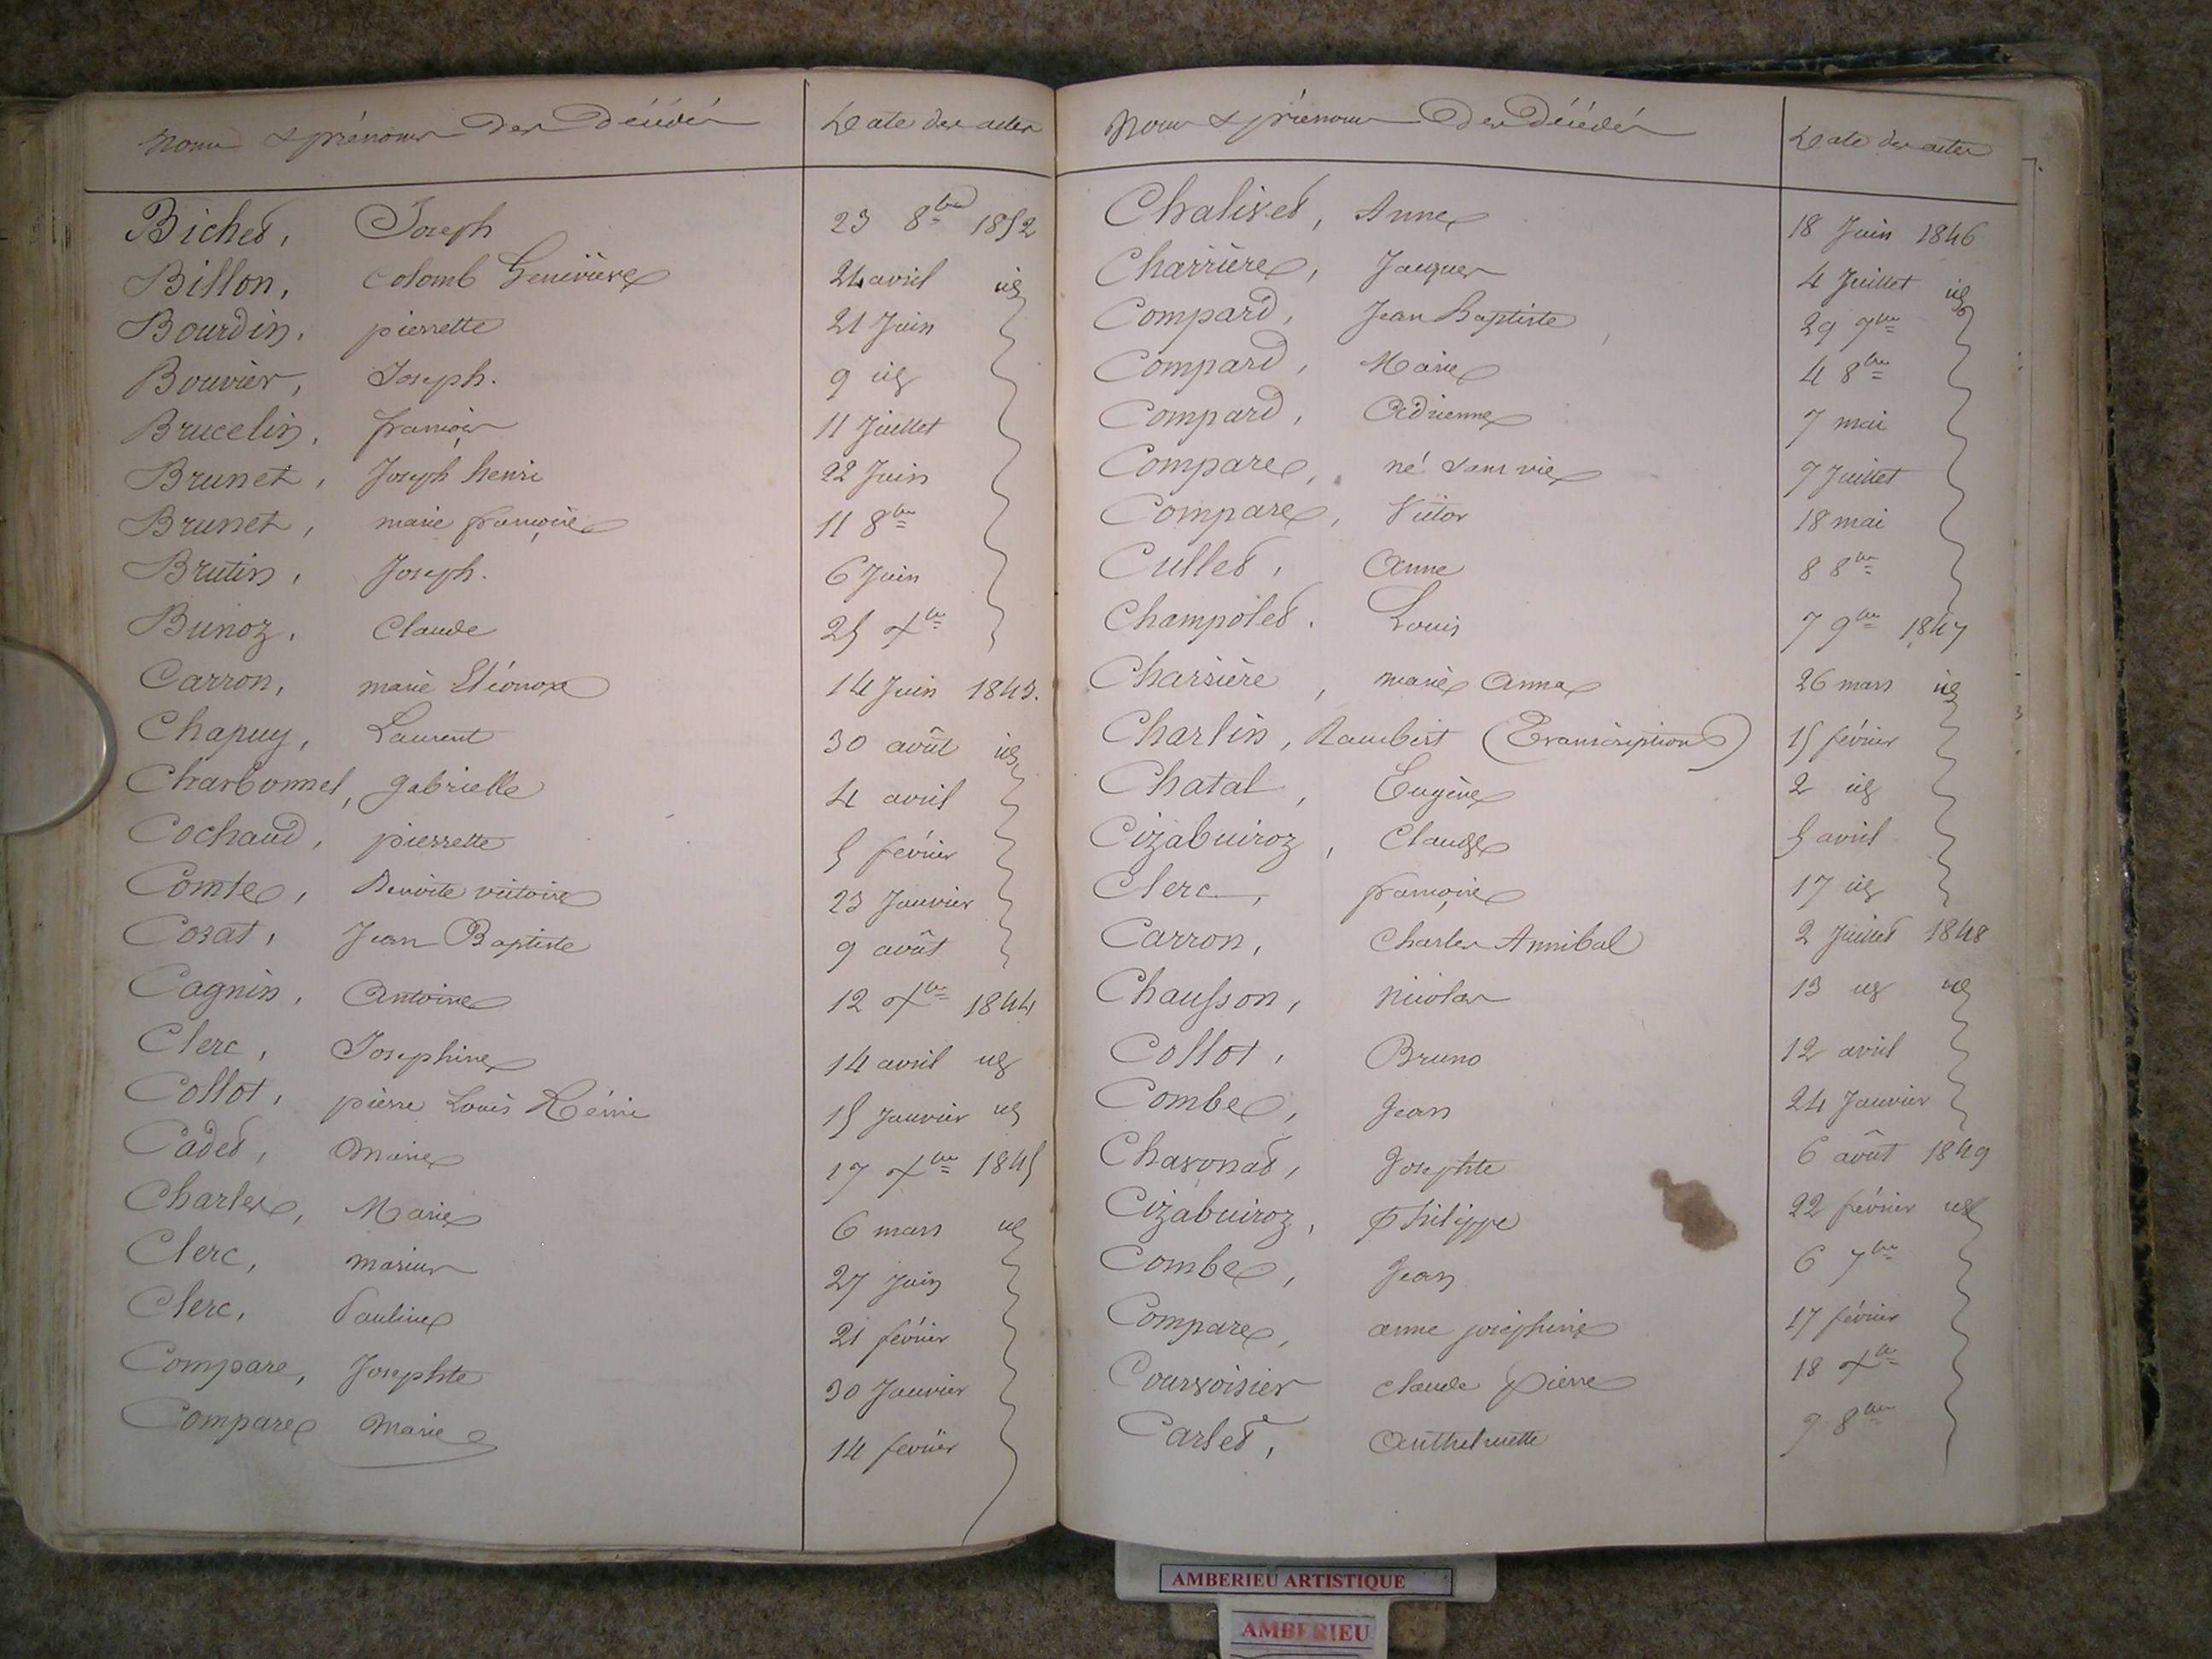 Noms & prénoms des Décédés Date des actes
Bichet, Joseph 23 8bre 1852
Billon, Colomb Geneviève 24 avril id
Bourdin, pierrette 21 Juin
Bouvier, Joseph. 9 id
Brucelin, françois 11 Juillet
Brunet, Joseph henri 22 Juin
Brunet, marie françoise 11 8bre
Brutin, Joseph. 6 Juin
Bunoz, Claude 25 Xbre
Carron, marie Eléonore 14 Juin 1843.
Chapuy, Laurent 30 août id
Charbonnel, gabrielle 4 avril
Cochaud, pierrette 5 février
Comte, Benoite victoire 23 Janvier
Corat, Jean Baptiste 9 août
Cagnin, Antoine 12 Xbre 1844
Clerc, Josephine 14 avril id
Collot, pierre Louis Rémi 15 Janvier id
Cadet, Marie 17 Xbre 1845
Charles, Marie 6 mars id
Clerc, marius 27 juin
Clerc, Pauline 21 février
Compare, Josephte 30 Janvier
Compare Marie 14 fevrier
Noms & prénoms Des Décédés Date des actes
Chalivet, Anne 18 Juin 1846
Charrière, Jacques 4 Juillet id
Compard, Jean Baptiste 29 7bre
Compard, Marie 4 8bre
Compard, Adrienne 7 mai
Compare, né sans vie 9 Juillet
Compare, Victor 18 mai
Cullet, Anne 8 8bre
Champolet. Louis 7 9bre 1847
Charrière, marie Anna 26 mars id
Charlin, Rambert (Transcription) 15 février
Chatal, Eugène 2 id
Cizabuiroz, Claude 5 avril
Clerc, françoise 17 id
Carron, Charles Annibal 2 Juillet 1848
Chausson, Nicolas 13 id id
Collot, Bruno 12 avril
Combe, Jean 24 Janvier
Chavonat, Josephte 6 août 1849
Cizabuiroz, Philippe 22 février id
Combe, Jean 6 7bre
Compare, anne joséphine 17 février
Courvoisier Claude Pierre 18 Xbre
Carlet, Anthelmette 9 8bre
AMBERIEU ARTISTIQUE
AMBERIEU